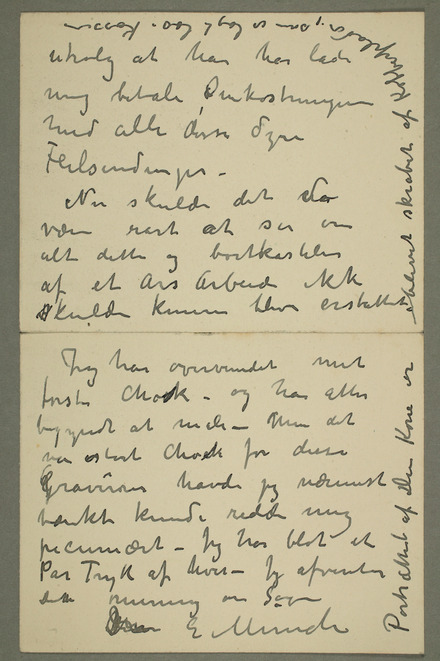 utrolig at han har ladet
mig betale Omkostningene
med alle disse dyre
Feilsendinger –
Nu skulde det da
være rart at se om
alt dette og bortkastelse
af et Års Arbeide ikke
skulde kunne blive erstattet
Jeg har overvundet mit
første Chock – og har atter
begyndt at male – Men det
var stort Chock for disse
Gravurer havde jeg nærmest
tænkt kunde redde mig
pecuniært – Jeg har blot et
Par Tryk af hver – Jeg afventer
din mening om Sagen
E Munch
Portrættet af Den Kone er
blevet skrabet af